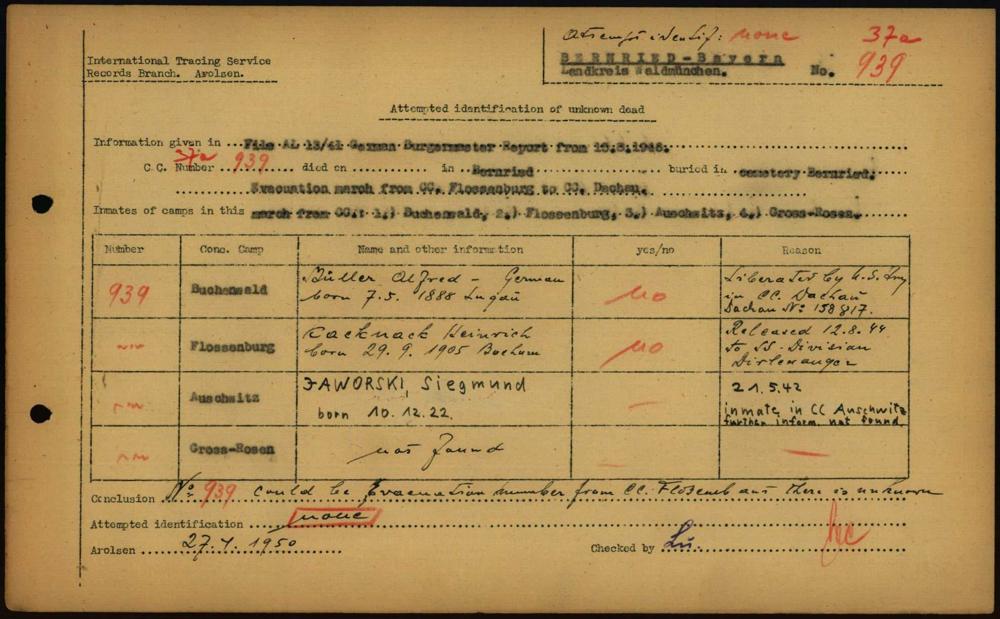 Attempt identif: none 37a
International Tracing Service
Records Branch. Arolsen.
BERNRIED-Bayern
Landkreis Waldmünchen. No. 939
Attempted identification of unknown dead
Information given in ... File AL 13/41 German Burgermaster Report from 15.8.1946.
37a
C C. Number 939 ... died on ... in Bernried ... buried in cemetery Bernried.
Evacuation march from CC. Flossenburg to CC. Dachau.
Inmates of camps in this march from CC.: 1.) Buchenwald, 2.) Flossenburg, 3.) Auschwitz, 4.) Gross-Rosen.
Number Conc. Camp Name and other information yes/no Reason
939 Buchenwald Müller Alfred - German no Liberated by U.S. Army
born 7.5. 1888 Lugau in CC. Dachau
Dachau No: 158817.
-"- Flossenburg Kacknack Heinrich no Released 12.8.44
born 29.9.1905 Bochum to SS-Division
Dirlewanger
-"- Auschwitz JAWORSKI, Siegmund — 21.5.42
born 10.12.22. inmate in CC Auschwitz
further inform. not found.
-"- Gross-Rosen not found — —
Conclusion No: 939 could be Evacuation number from CC. Flossenb and there is unknown
Attempted identification none
Arolsen 27.1.1950 Checked by Lü.